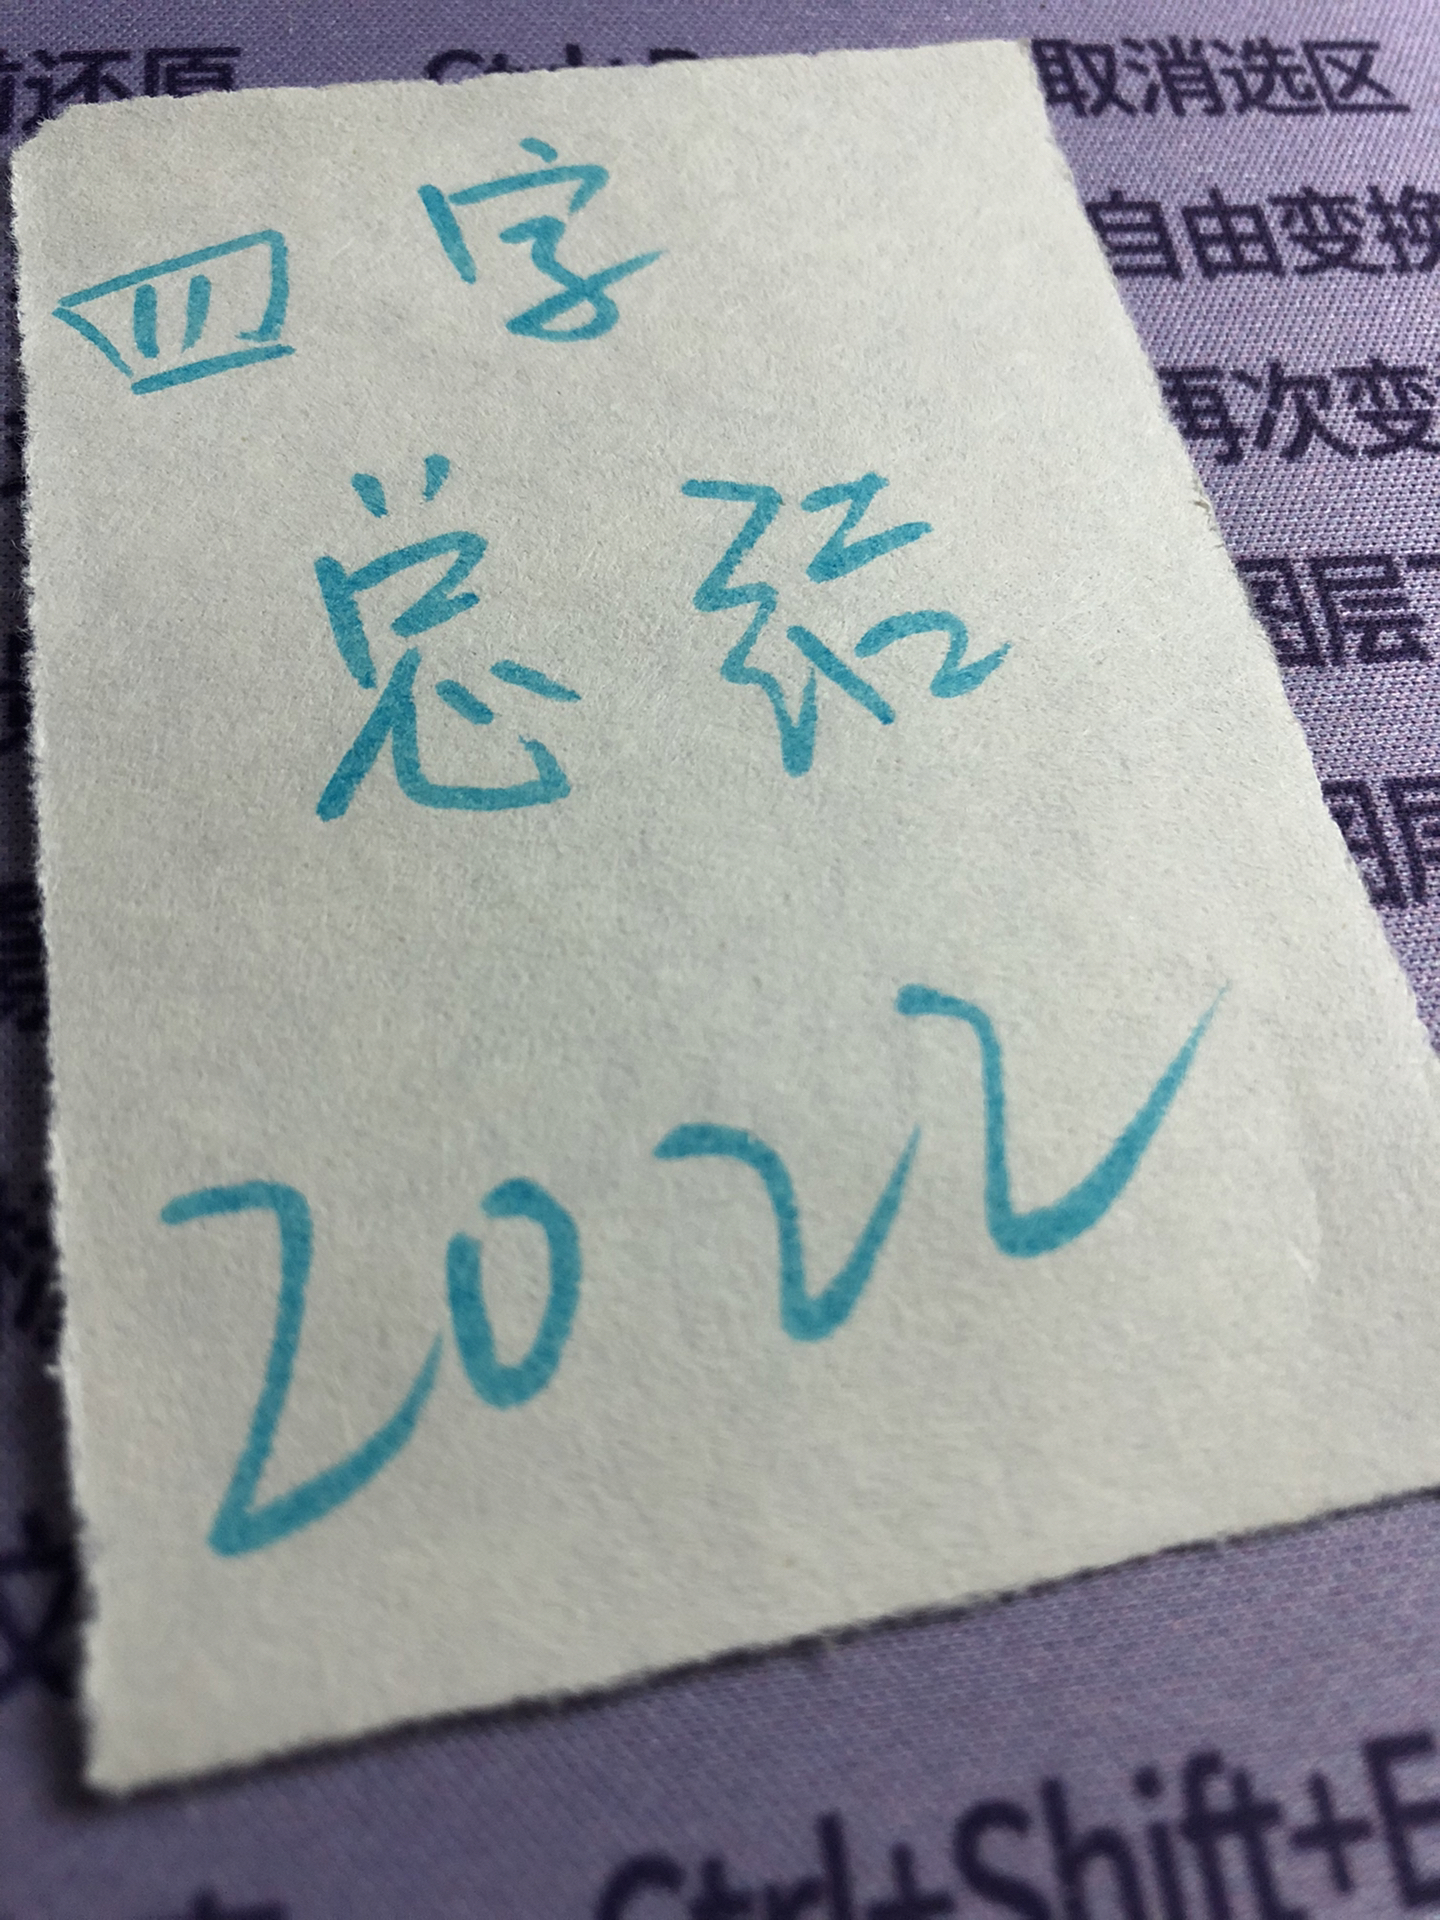 还原
取消选区
自由变换
再次变
图层
四字
总结
2022
Ctrl+Shift+E